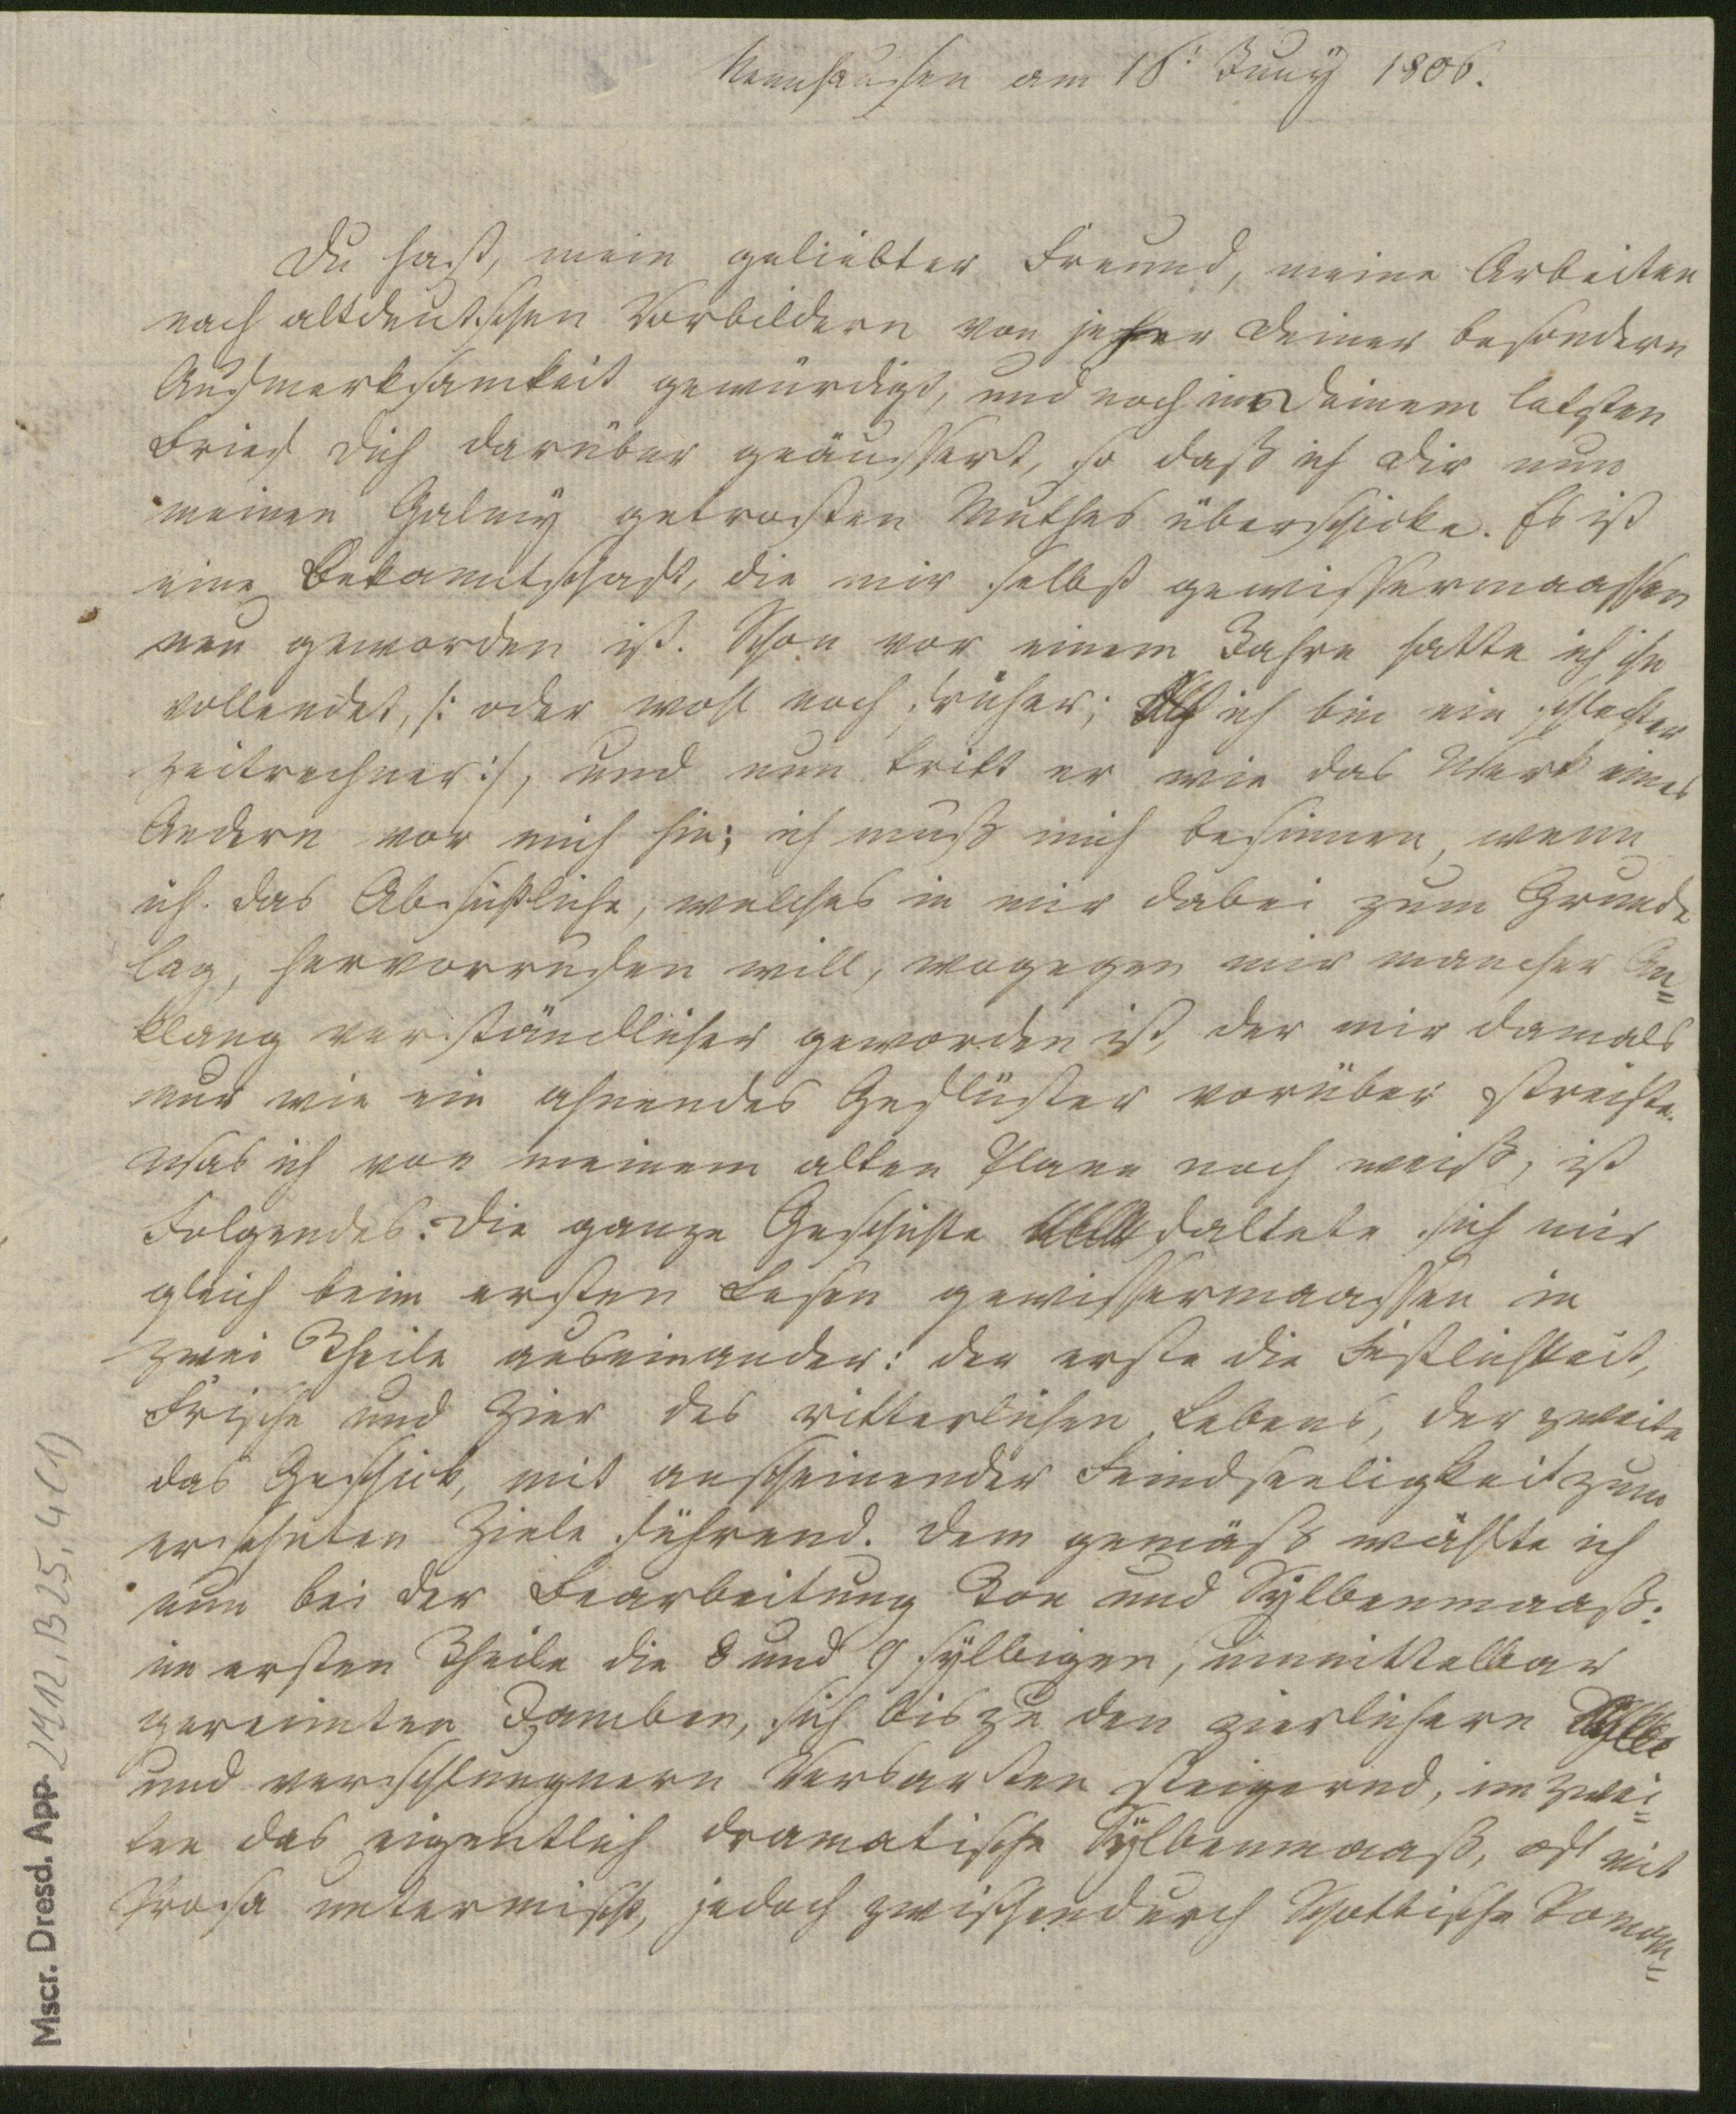 Nennhausen am 16. Juny 1806.
Du hast, mein geliebter Freund, meine Arbeiten
nach altdeutschen Vorbildern von jeher Deiner besondern
Aufmerksamkeit gewürdigt, und noch in Deinem letzten
Brief Dich darüber geäussert, so daß ich Dir nun
meinen Galmy getrosten Muthes überschicke. Es ist
eine Bekanntschaft, die mir selbst gewissermaassen
neu geworden ist. Schon vor einem Jahre hatte ich ihn
vollendet, /: oder wohl noch früher; ich bin ein schlechter
Zeitrechner :/, und nun tritt er wie das Werk eines
Andern vor mich hin; ich muß mich besinnen, wenn
ich das Absichtliche, welches in mir dabei zum Grunde
lag, hervorrufen will, wogegen mir mancher An=
klang verständlicher geworden ist, der mir damals
nur wie ein ahnendes Geflüster vorüber streifte.
Was ich von meinem alten Plane noch weiß, ist
Folgendes. Die ganze Geschichte faltete sich mir
gleich beim ersten Lesen gewissermaassen in
zwei Theile auseinander: der erste die Festlichkeit,
Frische und Zier des ritterlichen Lebens, der zweite
das Geschick, mit anscheinender Feindseeligkeit zum
ersehnten Ziele führend. Dem gemäß wählte ich
nun bei der Bearbeitung Ton und Sylbenmaaß:
im ersten Theile die 8 und 9 sylbigen, unmittelbar
gereimten Jamben, sich bis zu den zierlichern
und verschlungnern Versarten steigernd, im zwei=
ten das eigentlich dramatische Sylbenmaaß, oft mit
Prosa untermischt, jedoch zwischendurch Schottische Roman=
Mscr. Dresd. App. 2712, B25, 4(1)